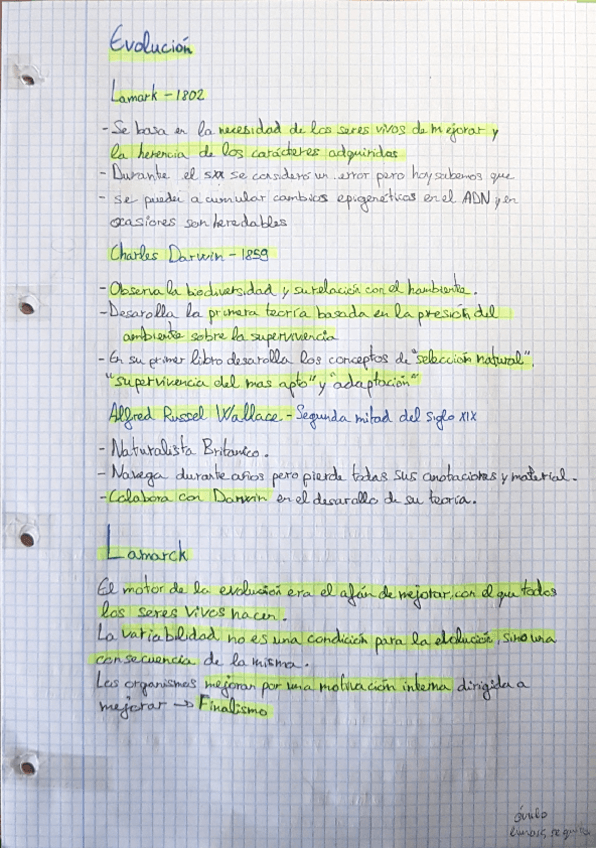 Evolución
Lamark - 1802
- Se basa en la necesidad de los seres vivos de mejorar y
la herencia de los carácteres adquiridos
- Durante el sxx se consideró un error pero hoy sabemos que
- se pueden acumular cambios epigenéticos en el ADN y en
ocasiones son heredables
Charles Darwin - 1859
- Observa la biodiversidad y su relación con el hambiente.
- Desarolla la primera teoría basada en la presión del
ambiente sobre la supervivencia
- En su primer libro desarolla los conceptos de "selección natural",
"supervivencia del mas apto" y "adaptación"
Alfred Russel Wallace - Segunda mitad del siglo XIX
- Naturalista Britanico.
- Navega durante años pero pierde todas sus anotaciones y material.
- Colabora con Darwin en el desarollo de su teoría.
Lamarck
El motor de la evolución era el afán de mejorar, con el que todos
los seres vivos nacen.
La variabilidad no es una condición para la evolución, sino una
consecuencia de la misma.
Los organismos mejoran por una motivación interna dirigida a
mejorar → Finalismo
óvulo